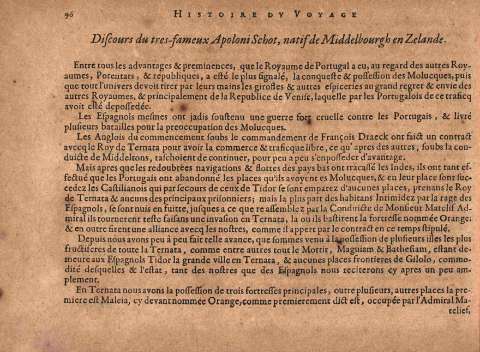 96 HISTOIRE DV VOYAGE
Discours du tres-fameux Apoloni Schot, natif de Middelbourgh en Zelande.
Entre tous les advantages & preminences, que le Royaume de Portugal a eu, au regard des autres Roy-
aumes, Potentats, & republiques, a esté le plus signalé, la conqueste & possession des Molucques, puis
que tout l'univers devoit tirer par leurs mains les girofles & autres espiceries au grand regret & envie des
autres Royaumes, & principalement de la Republice de Venise, laquelle par les Portugalois de ce traficq
avoit esté depossedée.
Les Espagnols mesmes ont jadis soustenu une guerre fort cruelle contre les Portugais, & livré
plusieurs batailles pour la preoccupation des Molucques.
Les Anglois du commencement soubs le commandement de François Draeck ont faict un contract
avecq le Roy de Ternata pour avoir la commerce & traficque libre, ce qu'apres des autres, soubs la con-
duicte de Middeltons, taschoient de continuer, pour peu a peu s'enposseder d'avantage.
Mais apres que les redoubtées navigations & flottes des pays bas ont traculsé les Indes, ils ont tant ef-
fectué que les Portugais ont abandonné les places qu'ils avoyent es Molucques, & en leur place sont suc-
cedez les Castillianois qui par secours de ceux de Tidor se sont emparez d'aucunes places, prenans le Roy
de Ternata & aucuns des principaux prisonniers; mais la plus part des habitans Intimidez par la rage des
Espagnols, se sont mis en fuitte, jusques a ce que reassemblez par la Conduicte de Monsieur Matelief Ad-
miral ils tournerent teste faisans une invasion en Ternata, la ou ils bastirent la fortresse nommée Orange;
& en outre firent une alliance avecq les nostres, comme il appert par le contract en ce temps stipulé.
Depuis nous avons peu a peu fait telle avance, que sommes venus a la possession de plusieurs isles les plus
fructieres de toute la Ternata, comme entre autres tout le Mortir, Maguiam & Bathesiam, estant de-
meure aux Espagnols Tidor la grande ville en Ternata, & aucunes places frontieres de Gilolo, commo-
dité desquelles & l'estat, tant des nostres que des Espagnols nous reciterons cy apres un peu am-
plement.
En Ternata nous avons la possession de trois fortresses principales, outre plusieurs, autres places la pre-
miere est Maleia, cy devant nommée Orange, comme premierement dict est, occupée par l'Admiral Ma-
telief,